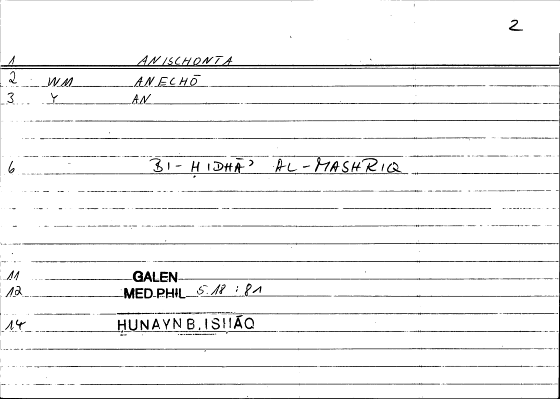 2
1 ANISCHONTA
2 WM ANECHŌ
3 Y AN
6 BI-ḤIDHĀʾ AL-MASHRIQ
11 GALEN
12 MED.PHIL 5.18 : 81
14 HUNAYN B. ISḤĀQ